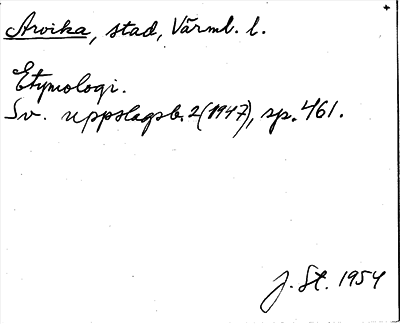 Arvika, stad, Värml. l.
Etymologi.
Sv. uppslagsb. 2 (1947), sp. 461.
J. St. 1954